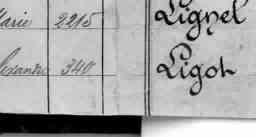 Marie 2215 Lignel
Alexandre 340 Ligot